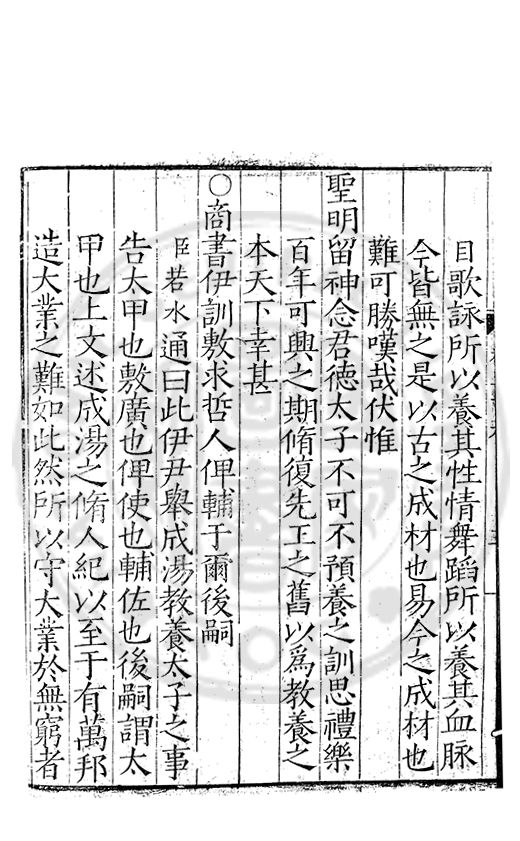 目歌詠所以養其性情舞蹈所以養其血脉
今皆無之是以古之成材也易今之成材也
難可勝嘆哉伏惟
聖明留神念君德太子不可不預養之訓思禮樂
百年可興之期脩復先王之舊以爲教養之
本天下幸甚
○商書伊訓敷求哲人俾輔于爾後嗣
臣若水通曰此伊尹舉成湯教養太子之事
告太甲也敷廣也俾使也輔佐也後嗣謂太
甲也上文述成湯之脩人紀以至于有萬邦
造大業之難如此然所以守大業於無窮者